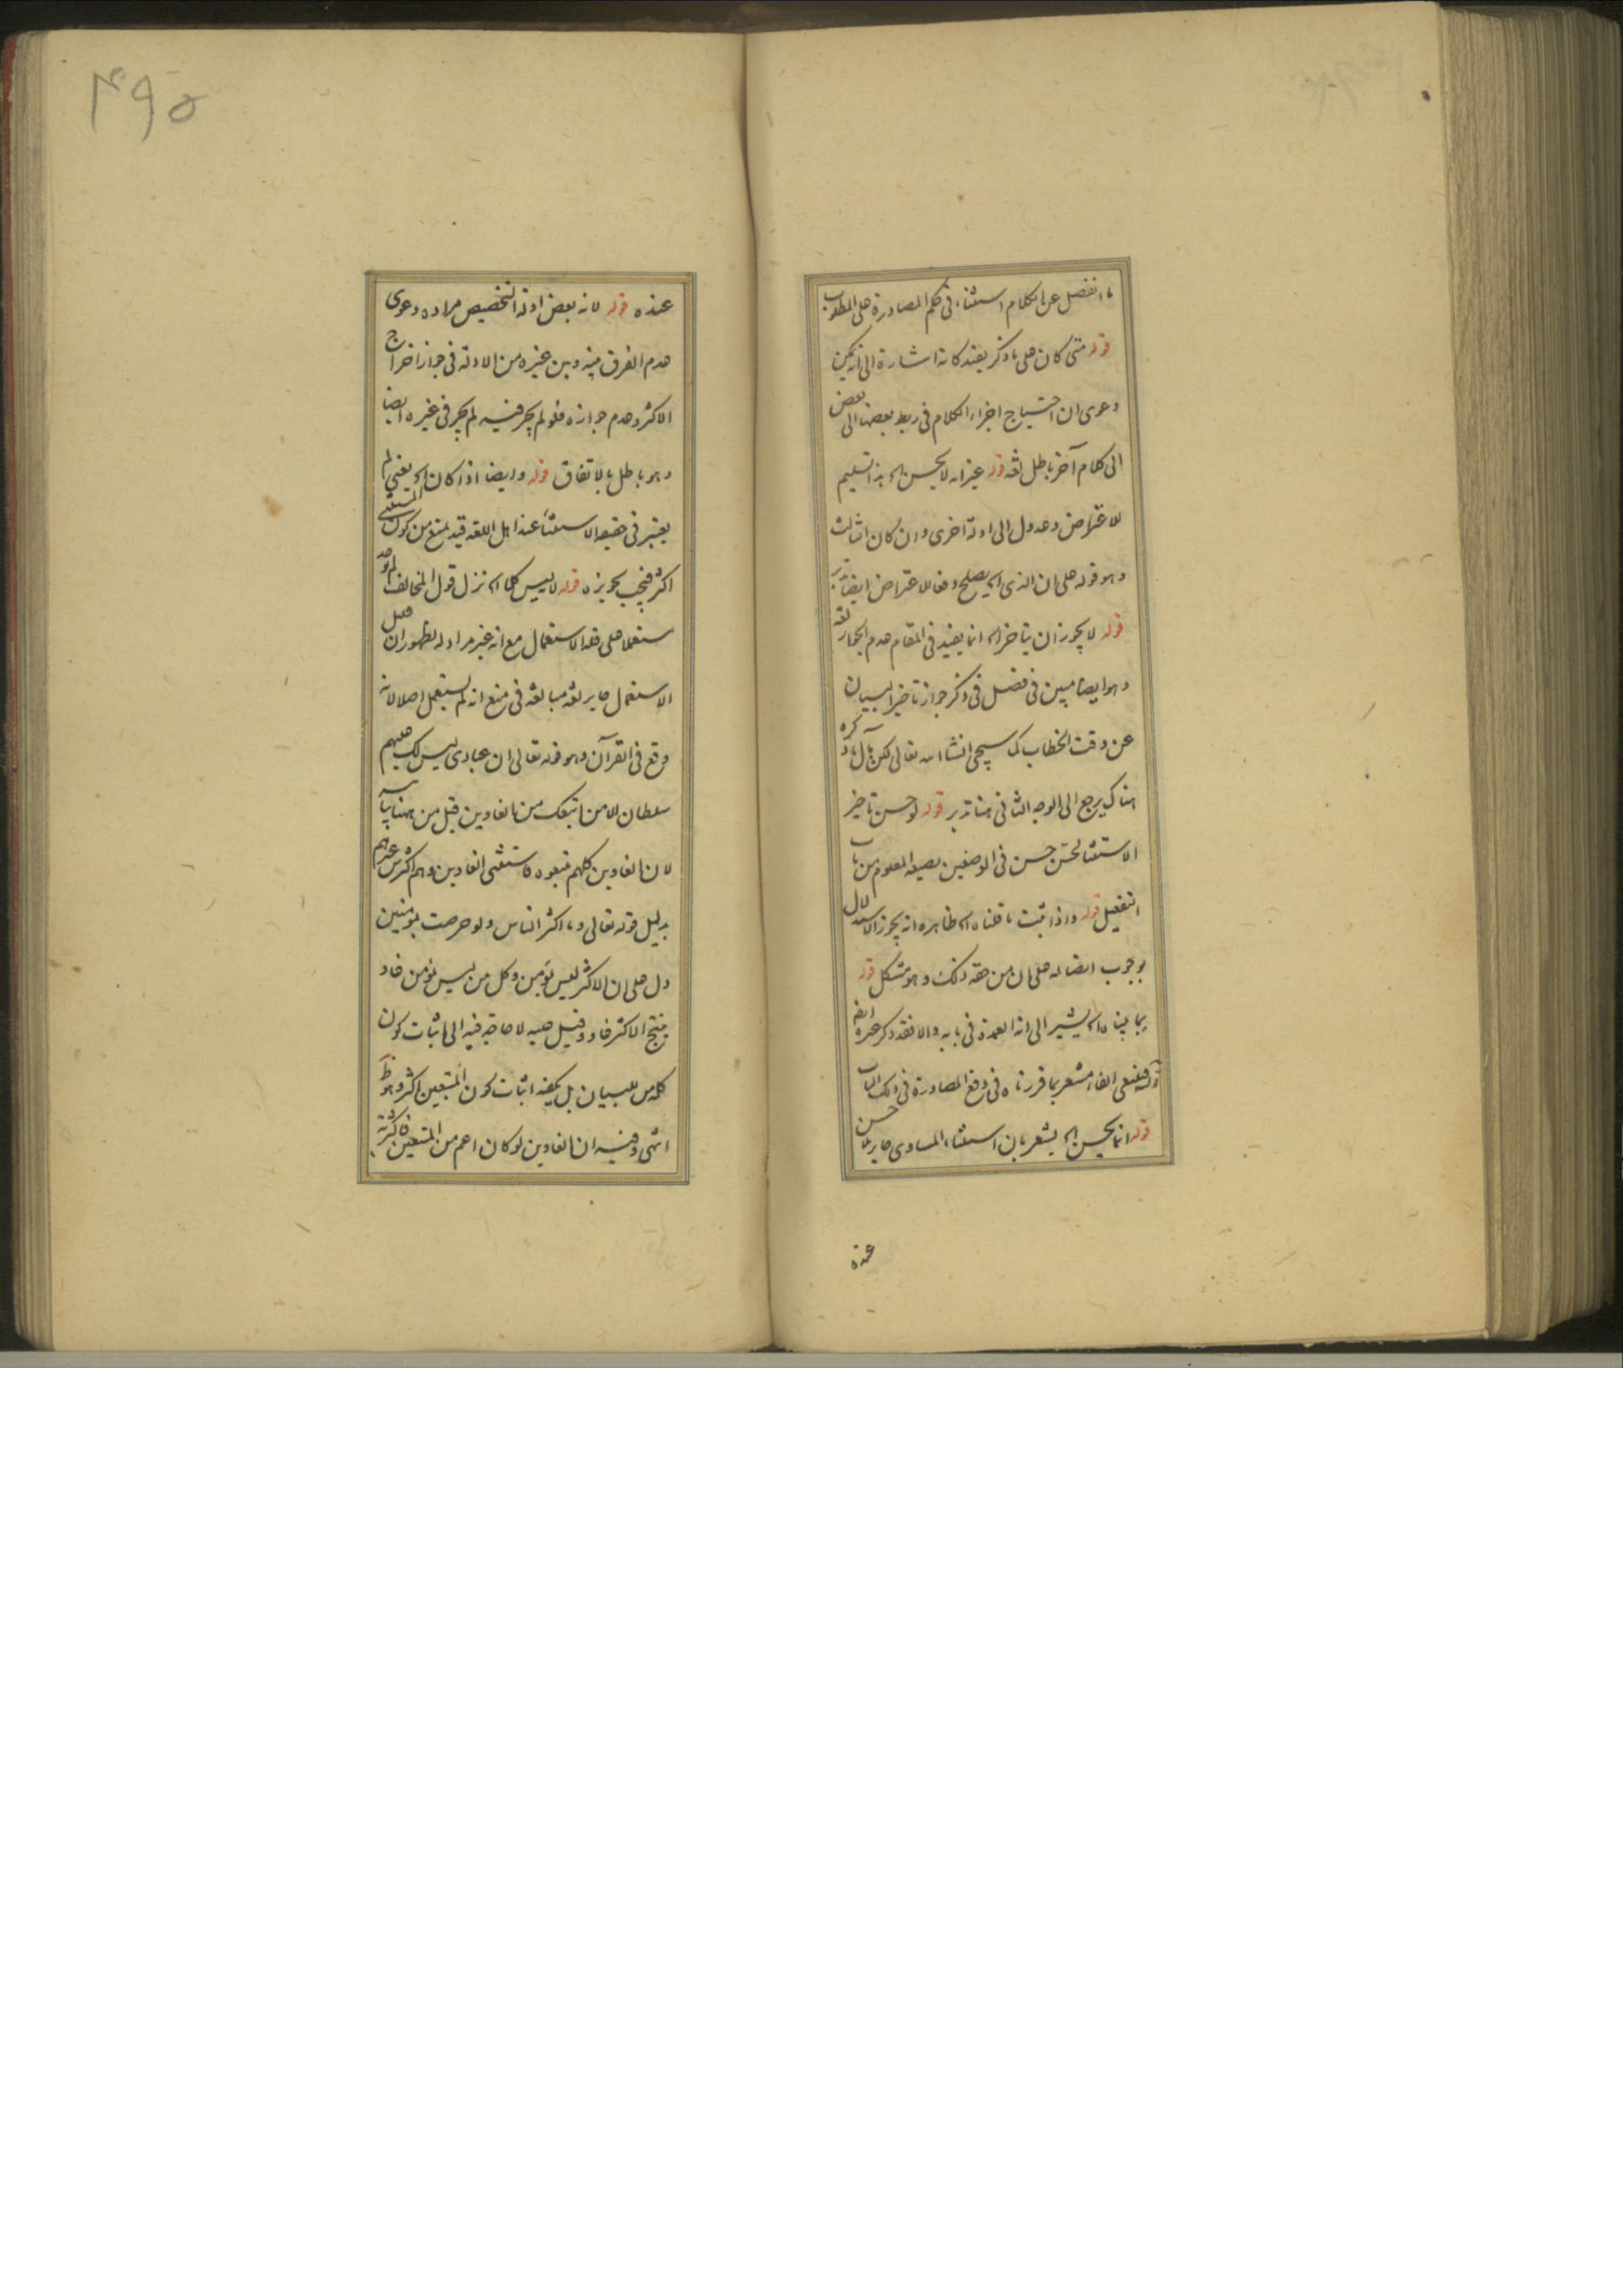 ما انفصل عن الكلام استثناء في حكم المصادرة على المطلوب
قوله متى كان على ما ذكر يفيد كانه اشارة الى انه يمكن
دعوى ان احتياج اجزاء الكلام في ربط بعضها الى بعض
الى كلام آخر باطل لغه قوله غير انه لا يحسن اه هذا تسليم
للاعتراض وعدول الى ادلة اخرى وان كان الثالث
وهو قوله على ان الذي اه يصلح دفعا للاعتراض ايضا تدبر
قوله لا يجوز ان يتاخر اه انما يفيد في المقام عدم الجواز لغة
وهو ايضا مبين في فصل في ذكر جواز تاخير البيان
عن وقت الخطاب كما سيجئ انشا الله تعالى لكن مآل ما ذكره
هناك يرجع الى الوجه الثاني هنا تدبر قوله لو حسن تاخير
الاستثنا لحسن حسن في الموضعين بصيغه المعلوم من باب
التفعيل قوله واذا ثبت ما قلناه اه ظاهره انه يجوز الاستدلال
بوجوب اتصاله على ان من حقه ذلك وهو مشكل قوله
بما بيناه اه يشير الى انه العمدة في بابه والا فقد ذكر غيره ايضا
قوله فينبغي الفاء مشعر بما قررناه في دفع المصادرة في ذلك الباب
قوله انما يحسن اه يشعر بان استثناء المساوى جايز بلا حسن
عنده
۴۹۵
عنده قوله لانه بعض ادلة التخصيص مراده دعوى
عدم الفرق بينه وبين غيره من الادلة في جواز اخراج
الاكثر وعدم جوازه فلو لم يجز فيه لم يجز في غيره ايضا
وهو باطل بالاتفاق قوله وايضا اذا كان اه يعني لم
يعتبر في حقيقه الاستثناء عند اهل اللغه قيد يمنع من كون المستثنى
اكثر فيجب تجويزه قوله لا ليس كلما اه نزل قول المخالف لم يوجد
مستعملا على قلة الاستعمال مع انه غير مراد له لظهور ان قليل
الاستعمال جايز لغه مبالغه في منع انه لم يستعمل اصلا لانه
وقع في القرآن وهو قوله تعالى ان عبادى ليس لك عليهم
سلطان الا من اتبعك من الغاوين قيل من ههنا بيانيه
لان الغاوين كلهم متبعوه فاستثنى الغاوين وهم اكثر من غيرهم
بدليل قوله تعالى وما اكثر الناس ولو حرصت بمؤمنين
دل على ان الاكثر ليس بمؤمن وكل من ليس بمؤمن غاو
ينتج الاكثر غاو وقيل عليه لا حاجة فيه الى اثبات كون
كلمه من للبيان بل يكفيه اثبات كون المتبعين اكثر وهو ظ
انتهى وفيه ان الغاوين لو كان اعم من المتبعين فاكثرية